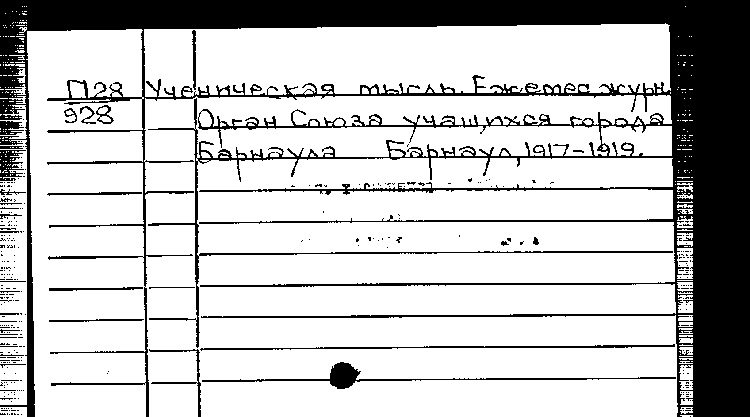 П28 Ученическая мысль. Ежемес. журн.
928 Орган Союза учащихся города
Барнаула Барнаул, 1917-1919.